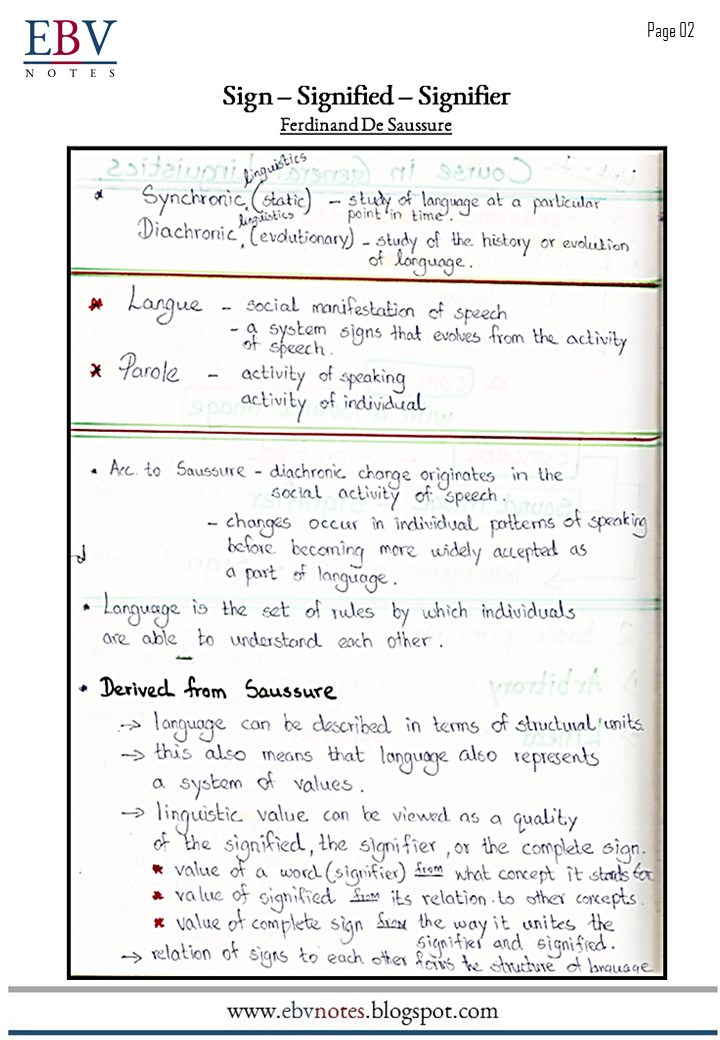 EBV
NOTES
Page 02
Sign – Signified – Signifier
Ferdinand De Saussure
linguistics
* Synchronic, (static) – study of language at a particular
point in time.
linguistics
Diachronic, (evolutionary) – study of the history or evolution
of language.
* Langue – social manifestation of speech
– a system signs that evolves from the activity
of speech.
* Parole – activity of speaking
activity of individual
• Acc. to Saussure – diachronic change originates in the
social activity of speech.
– changes occur in individual patterns of speaking
before becoming more widely accepted as
a part of language.
• Language is the set of rules by which individuals
are able to understand each other.
• Derived from Saussure
→ language can be described in terms of structural units.
→ this also means that language also represents
a system of values.
→ linguistic value can be viewed as a quality
of the signified, the signifier, or the complete sign.
* value of a word (signifier) from what concept it stands for
* value of signified from its relation to other concepts.
* value of complete sign from the way it unites the
signifier and signified.
→ relation of signs to each other forms the structure of language
www.ebvnotes.blogspot.com